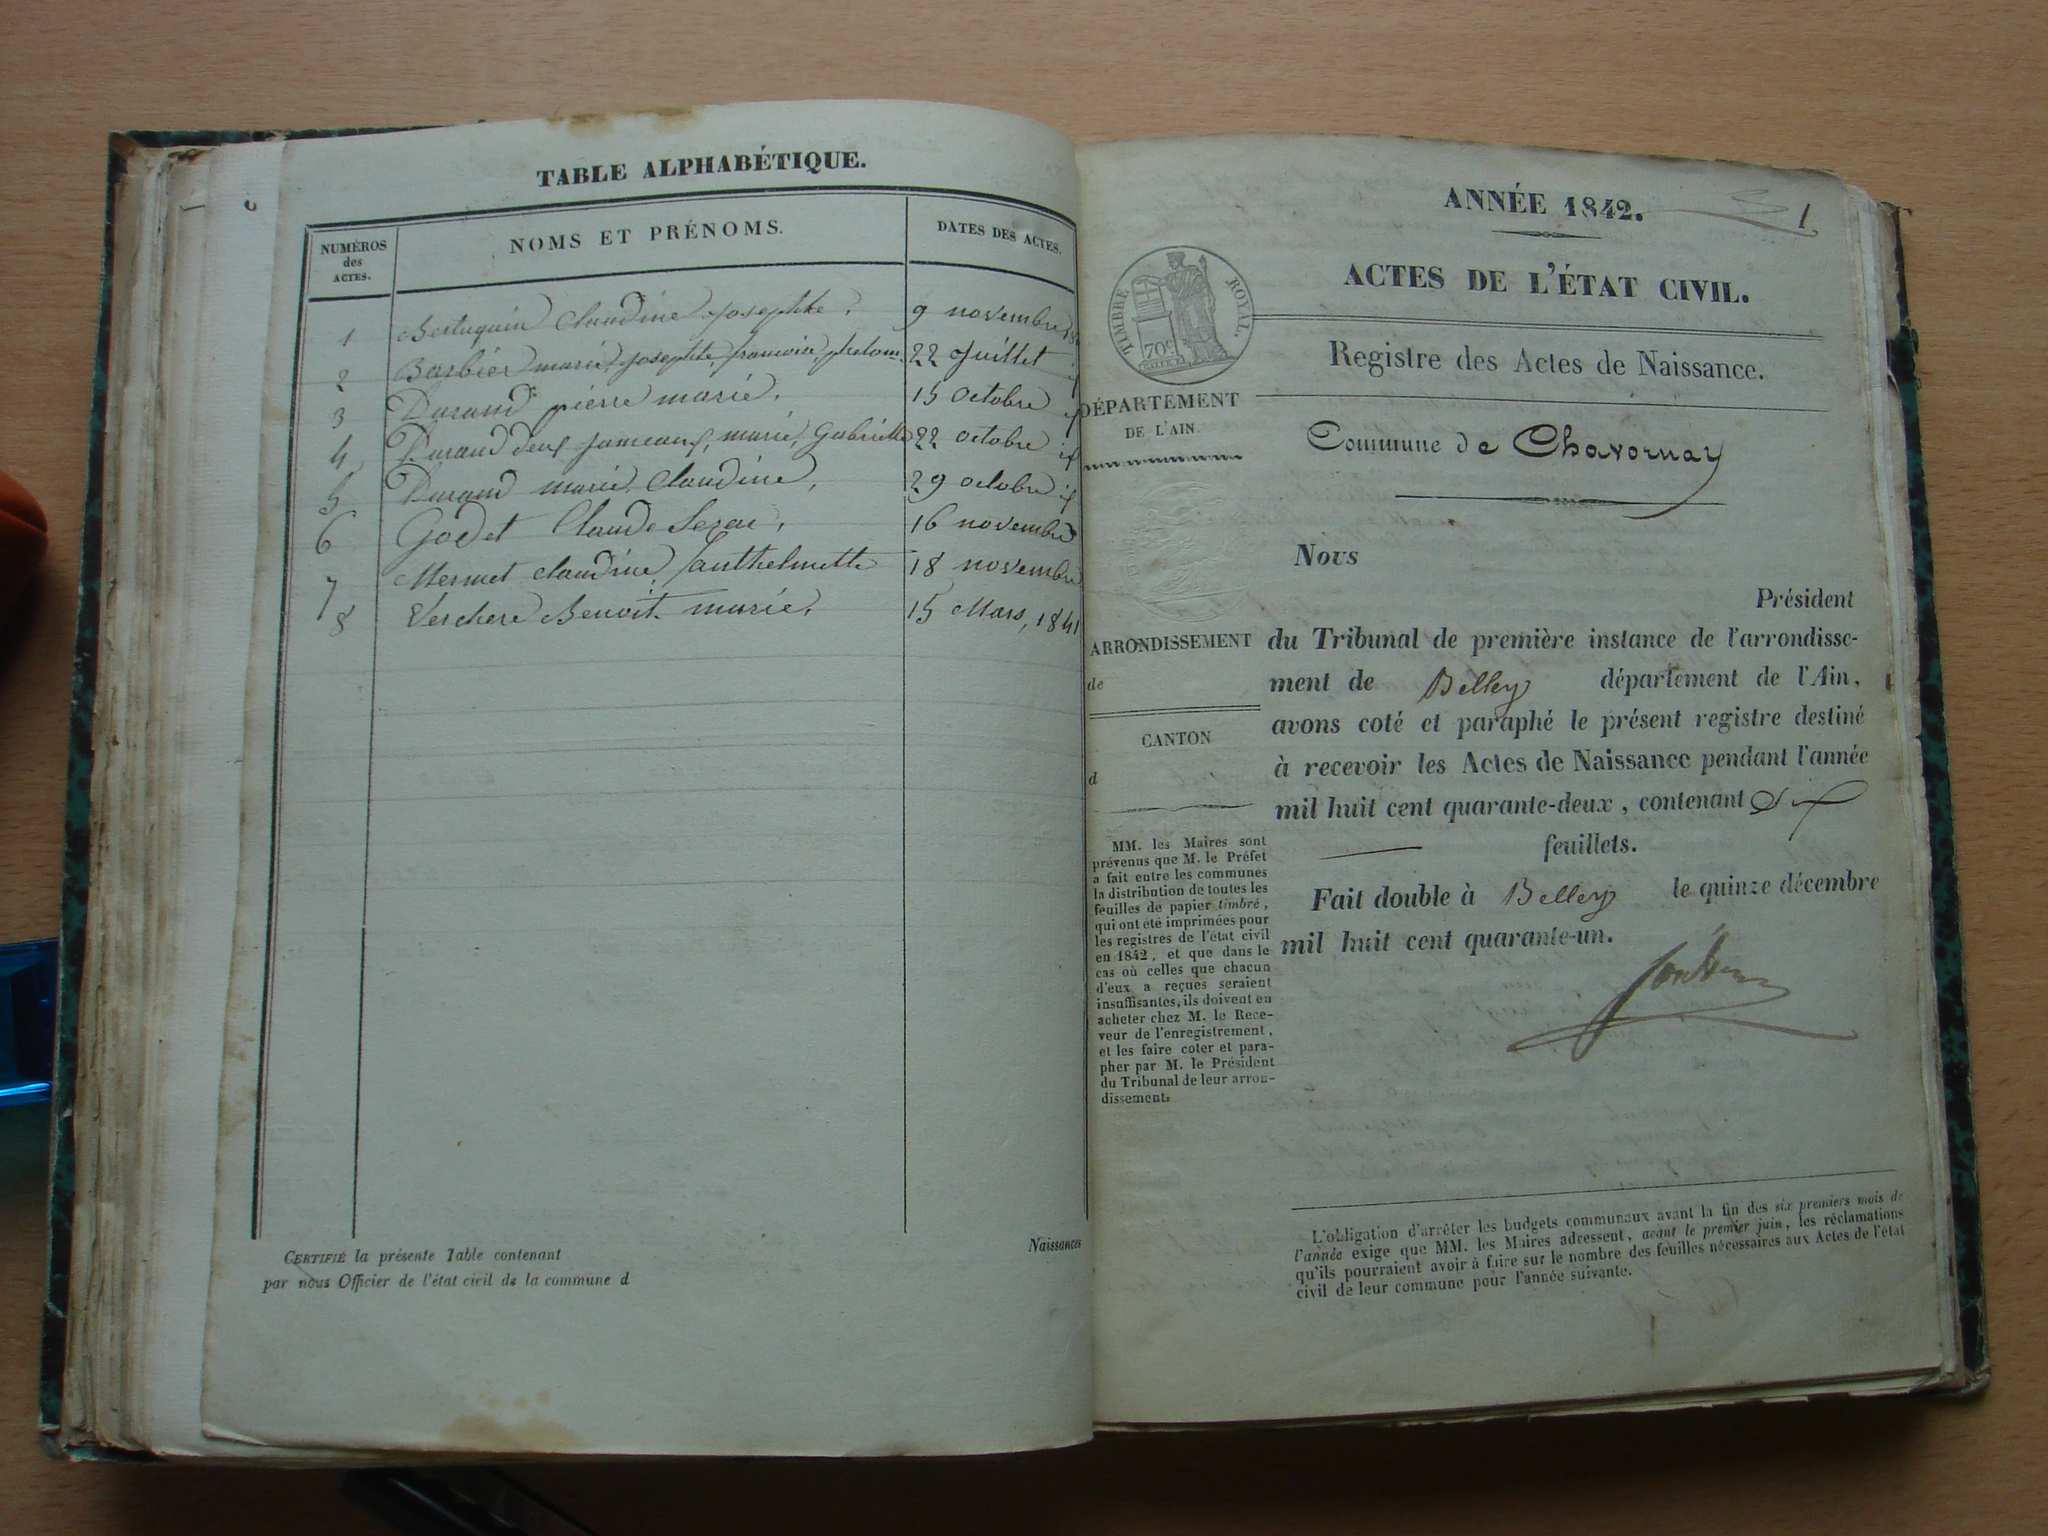 TABLE ALPHABÉTIQUE.
NUMÉROS des ACTES.
NOMS ET PRÉNOMS.
DATES DES ACTES.
1 Claudine josephte, 9 novembre
2 Barbier marie, josephte, francoise, 22 Juillet
3 Durand pierre marie, 15 octobre
4 Durand deux jumeaux, marie, Gabrielle 22 octobre
5 Durand marie Claudine, 29 octobre
6 Godet Claude 16 novembre
7 Mermet claudine, anthelmette 18 novembre
8 Verchere Benoit marie, 15 Mars, 1841
CERTIFIÉ la présente Table contenant
par nous Officier de l'état civil de la commune d
Naissances
1
ANNÉE 1842.
ACTES DE L'ÉTAT CIVIL.
TIMBRE ROYAL.
70c
Registre des Actes de Naissance.
DÉPARTEMENT
DE L'AIN.
Commune de Chavornay
Nous
Président
ARRONDISSEMENT
de
CANTON
d
du Tribunal de première instance de l'arrondisse-
ment de Belley département de l'Ain,
avons coté et paraphé le présent registre destiné
à recevoir les Actes de Naissance pendant l'année
mil huit cent quarante-deux, contenant six
feuillets.
Fait double à Belley le quinze décembre
mil huit cent quarante-un.
MM. les Maires sont
prévenus que M. le Préfet
a fait entre les communes
la distribution de toutes les
feuilles de papier timbré,
qui ont été imprimées pour
les registres de l'état civil
en 1842, et que dans le
cas où celles que chacun
d'eux a reçues seraient
insuffisantes, ils doivent en
acheter chez M. le Rece-
veur de l'enregistrement,
et les faire coter et para-
pher par M. le Président
du Tribunal de leur arron-
dissement.
L'obligation d'arrêter les budgets communaux avant la fin des six premiers mois de
l'année exige que MM. les Maires adressent, avant le premier juin, les réclamations
qu'ils pourraient avoir à faire sur le nombre des feuilles nécessaires aux Actes de l'état
civil de leur commune pour l'année suivante.